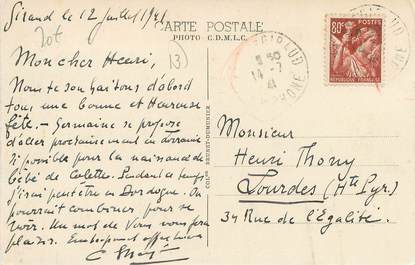 Giraud le 12 juillet 1941
CARTE POSTALE
PHOTO C.D.M.L.C.
(13)
Mon cher Henri,
Nous te souhaitons d'abord
tous une bonne et Heureuse
fête. - Germaine se propose
d'aller prochainement en Lorraine
si possible pour la naissance du
bébé de Colette. Pendant ce temps
j'irai peut être en Dordogne. On
pourrait combiner pour se
voir. Un mot de Vous nous fera
plaisir.
COL. BRUNET-DUMINIER
GIRAUD
50
14 -7
41
RHONE
80c
POSTES
REPUBLIQUE FRANÇAISE
Monsieur
Henri Thony
Lourdes (Hte Pyr.)
34 Rue de l'Egalité.